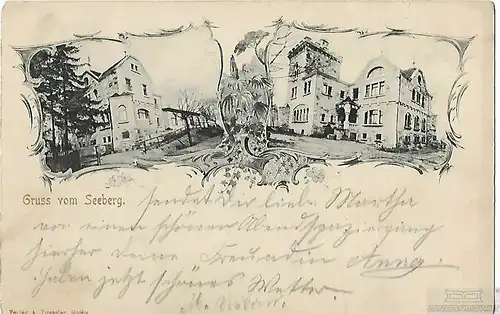 Gruss vom Seeberg.
sendet Dir liebe Martha
von einem schönen Abendspaziergang
hierher deine Freundin Anna
Haben jetzt schönes Wetter.
Verlag